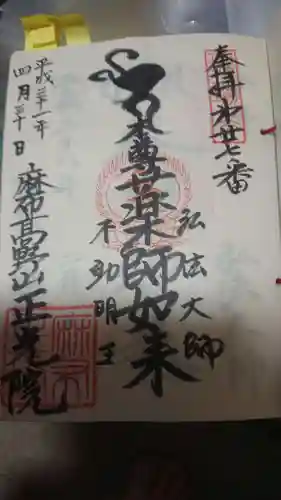 奉拝第廿七番
弘法大師
本尊薬師如来
不動明王
平成三十一年
四月三十日
麻布高野山正光院